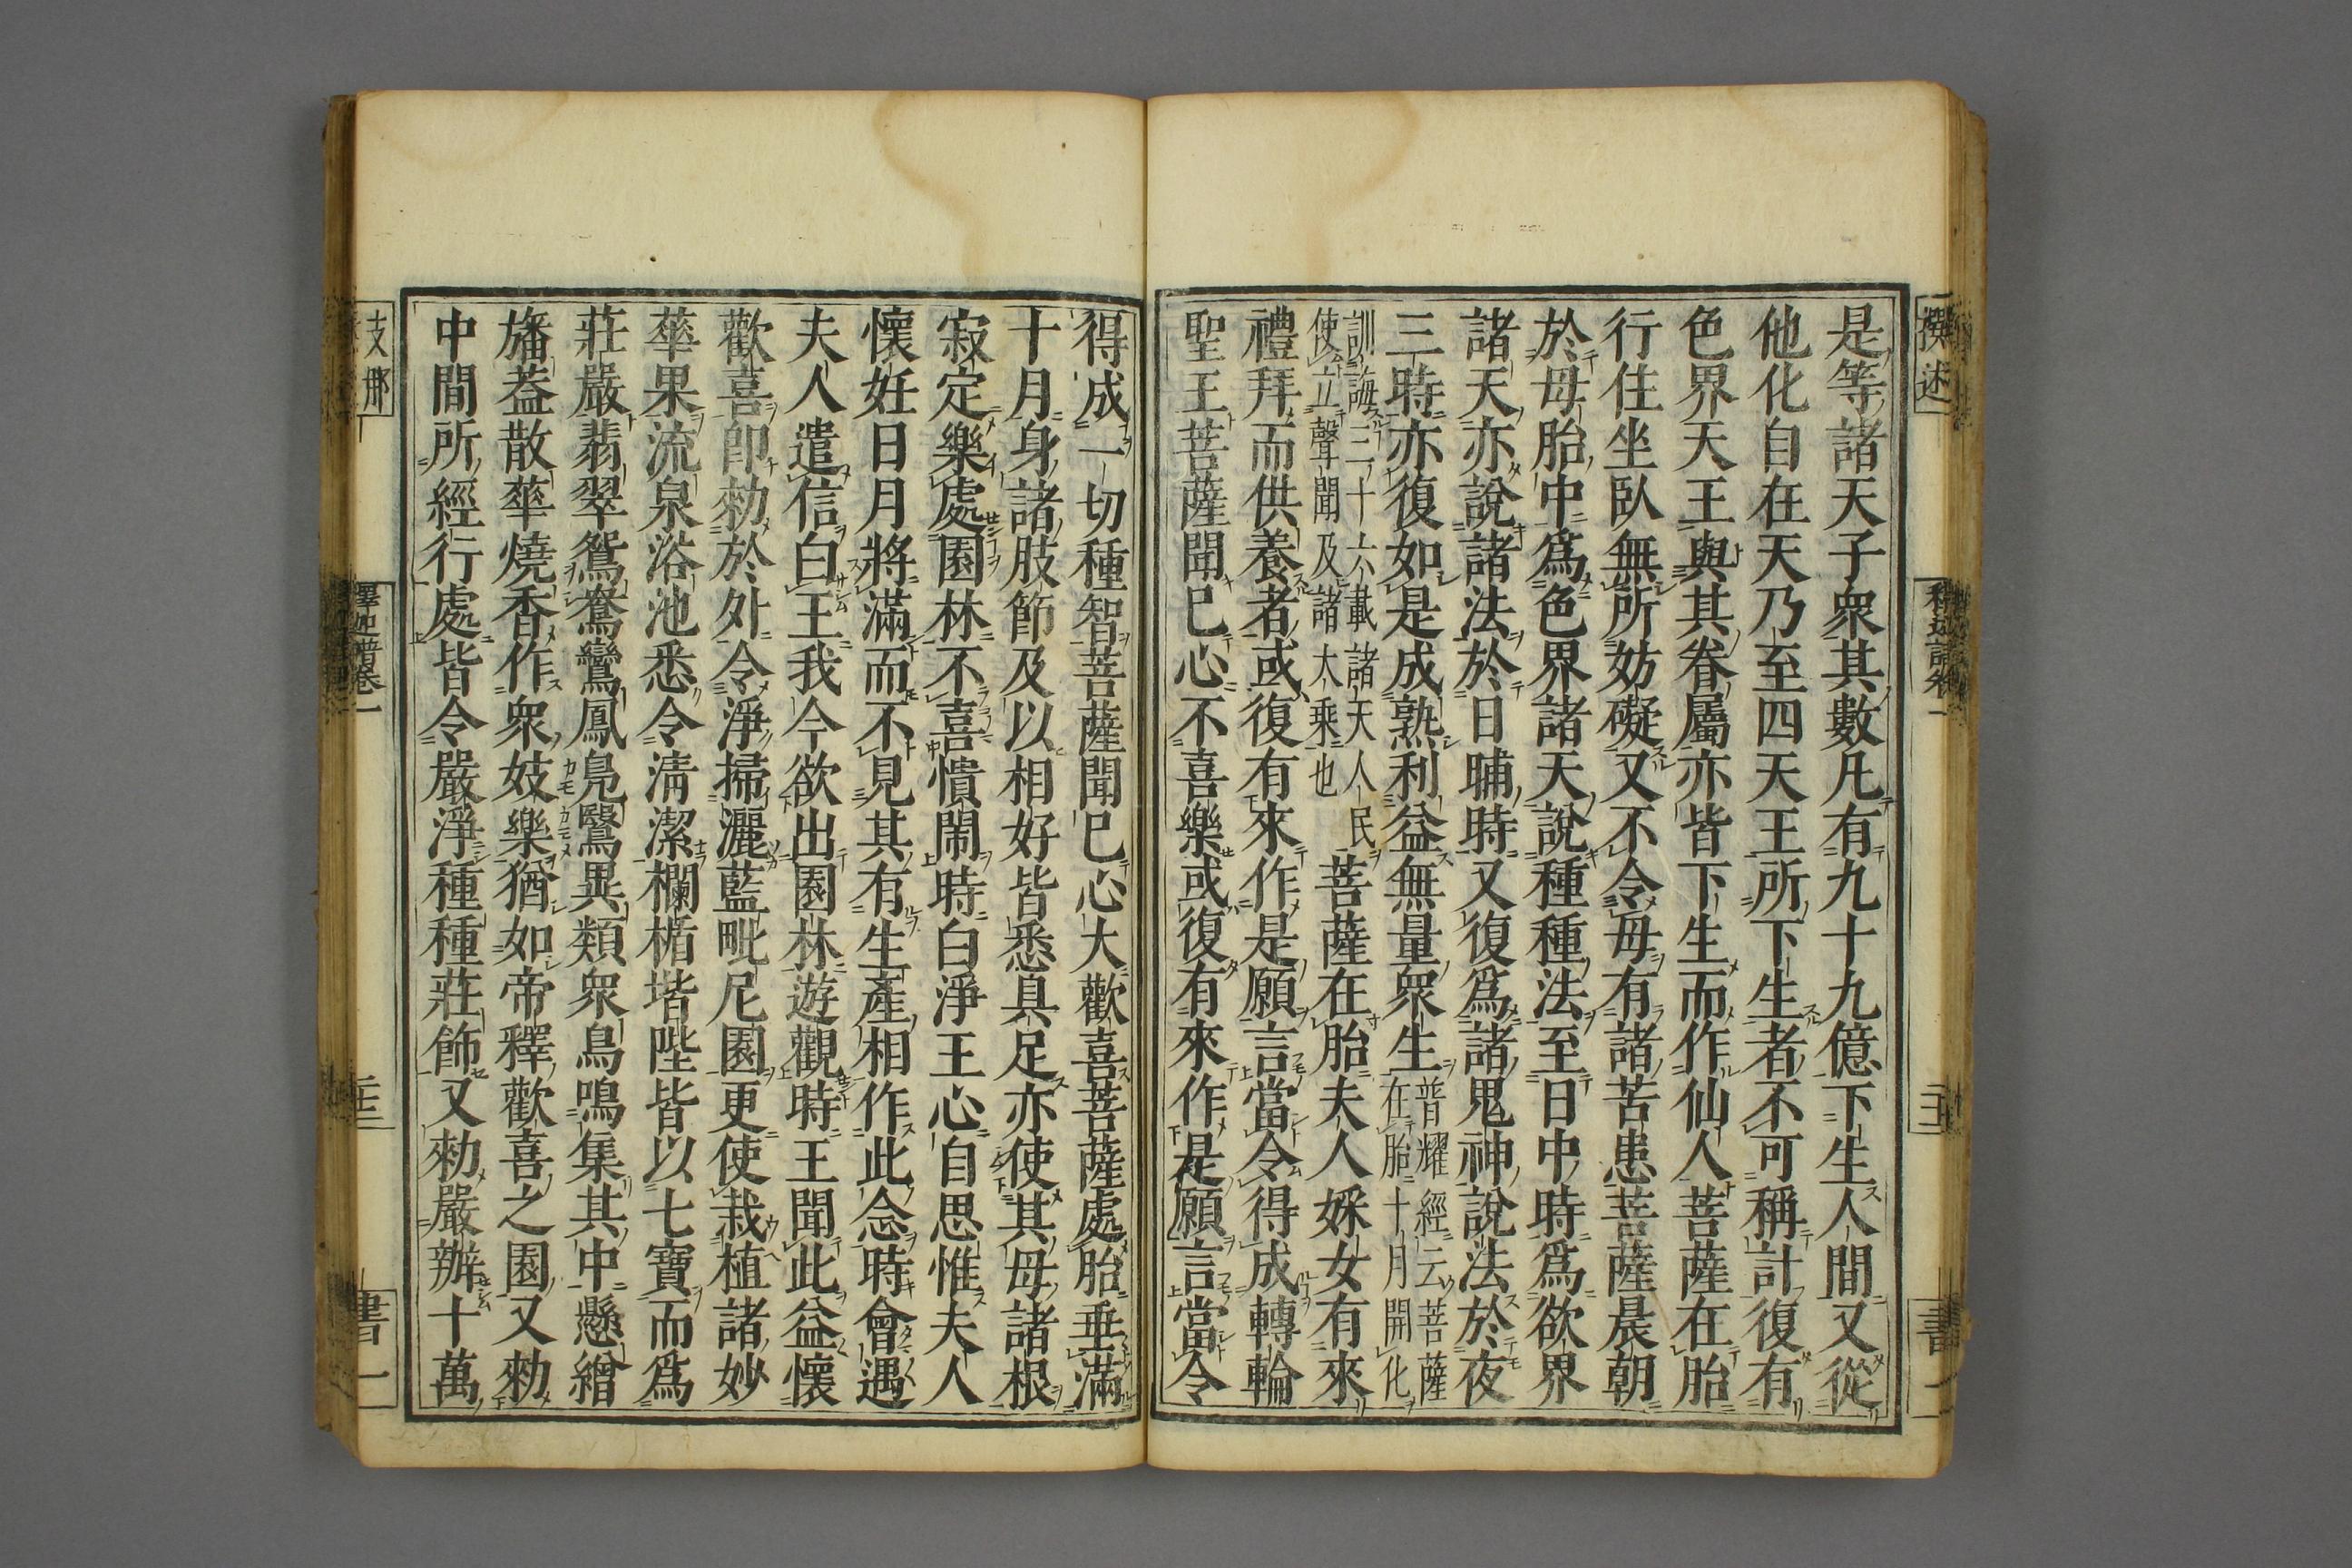 是等諸天子衆其數凡有九十九億下生人間又從
他化自在天乃至四天王所下生者不可稱計復有
色界天王與其眷屬亦皆下生而作仙人菩薩在胎
行住坐臥無所妨礙又不令母有諸苦患菩薩晨朝
於母胎中爲色界諸天說種種法至日中時爲欲界
諸天亦說諸法於日晡時又復爲諸鬼神說法於夜
三時亦復如是成熟利益無量衆生普耀經云菩薩在胎十月開化
訓誨三十六載諸天人民使立聲聞及諸大乘也菩薩在胎夫人婇女有來
禮拜而供養者或復有來作是願言當令得成轉輪
聖王菩薩聞已心不喜樂或復有來作是願言當令
得成一切種智菩薩聞已心大歡喜菩薩處胎垂滿
十月身諸肢節及以相好皆悉具足亦使其母諸根
寂定樂處園林不喜憒鬧時白淨王心自思惟夫人
懷妊日月將滿而不見其有生產相作此念時會遇
夫人遣信白王我今欲出園林遊觀時王聞此益懷
歡喜卽勑於外令淨掃灑藍毗尼園更使栽植諸妙
華果流泉浴池悉令淸潔欄楯堦陛皆以七寶而爲
莊嚴翡翠鴛鴦鸞鳳鳧鷖異類衆鳥鳴集其中懸繒
旛葢散華燒香作衆妓樂猶如帝釋歡喜之園又勑
中間所經行處皆令嚴淨種種莊飾又勑嚴辦十萬
撰述
支那
釋迦譜卷一
書一